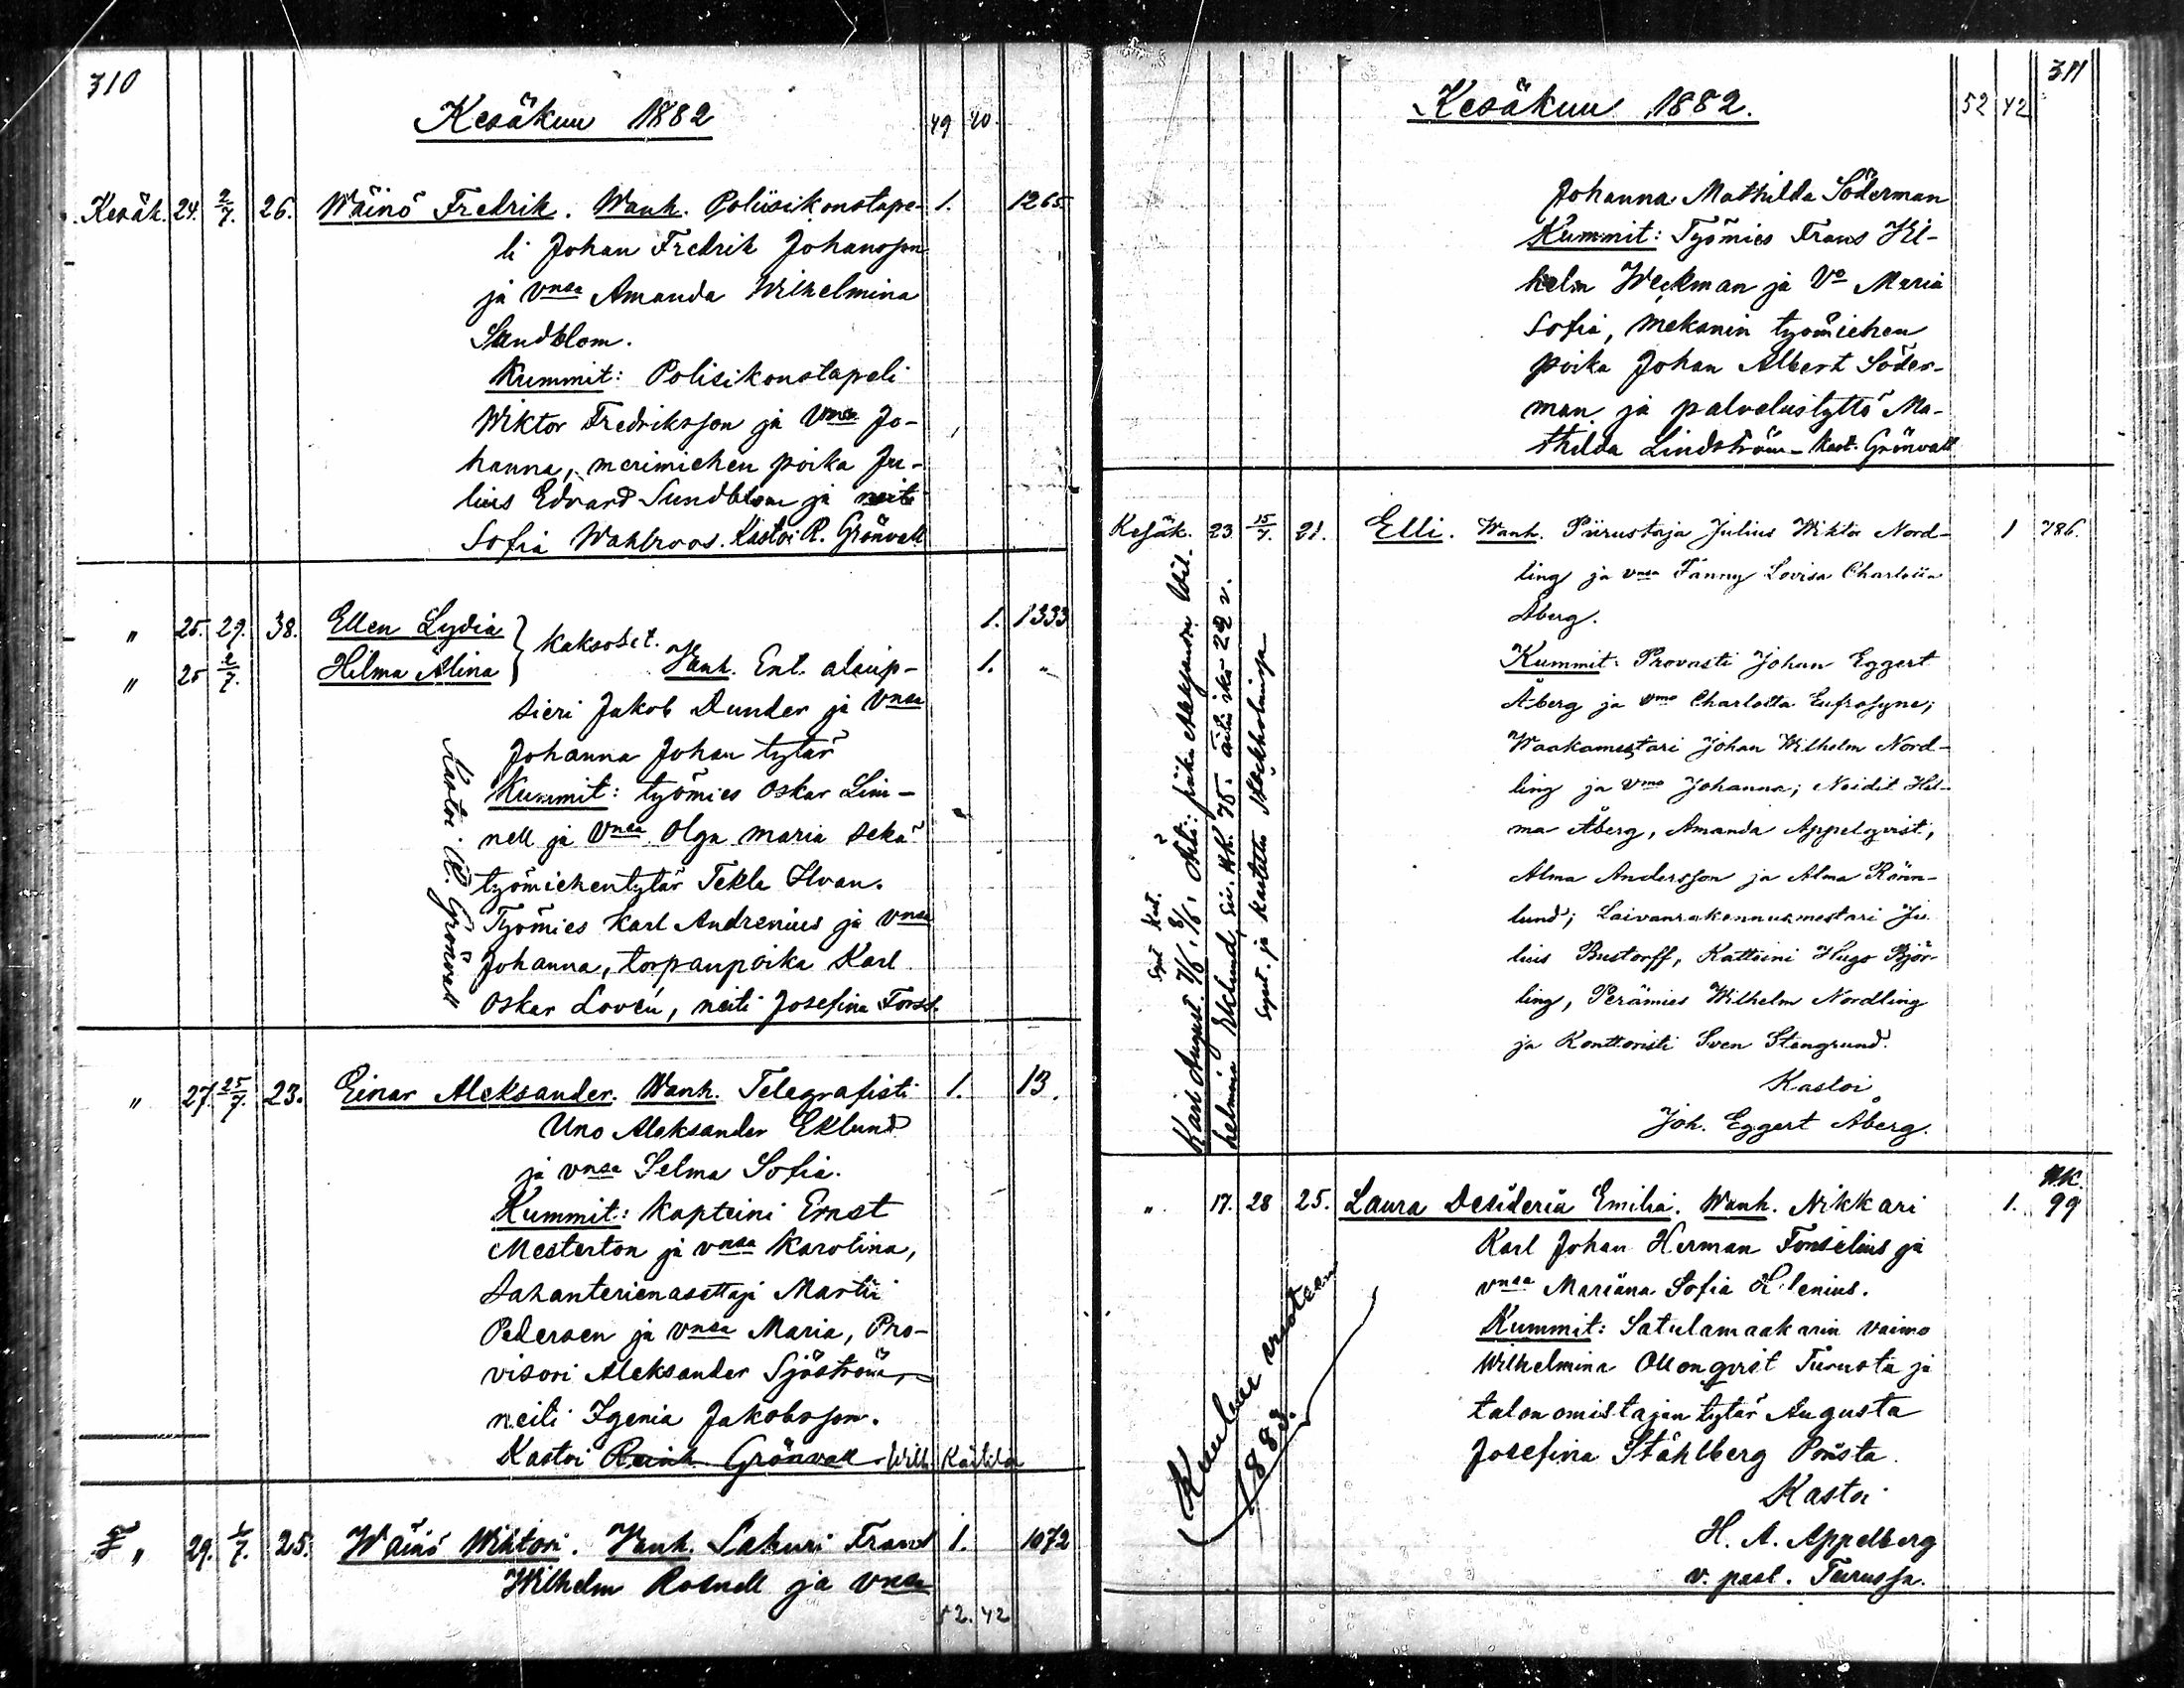 310
Kesäkuu 1882
49 40.
Kesäk. 24. 2/7. 26. Wäinö Fredrik. Wanh. Poliisikonstape- 1. 1265
li Johan Fredrik Johansson
ja vnsa Amanda Wilhelmina
Sandblom.
Kummit: Polisikonstapeli
Wiktor Fredriksson ja Vnsa Jo-
hanna, merimiehen poika Ju-
lius Edvard Sundblom ja neiti
Sofia Wahlroos. Kastoi R. Grönvall
" 25. 29. 38. Ellen Lydia 1. 1333
kaksoset.
" 25 2/7. Hilma Alina Wanh. Ent. aliup- 1. "
sieri Jakob Dunder ja Vnsa
Johanna Johan tytär
Kummit: työmies Oskar Lin-
nell ja Vnsa Olga Maria sekä
työmiehentytär Tekla Ilvan.
Työmies Karl Andrenius ja vnsa
Johanna, torpanpoika Karl
Oskar Lovén, neiti Josefina Forss.
Kastoi R. Grönvall
" 27. 25/7. 23. Einar Aleksander. Wanh. Telegrafisti 1. 13.
Uno Aleksander Eklund
ja vnsa Selma Sofia.
Kummit: Kapteini Ernst
Mesterton ja vnsa Karolina,
sahanterienasettaja Martii
Pedersen ja vnsa Maria, Pro-
visori Aleksander Sjöström,
neiti Igenia Jakobsson.
Kastoi Reinh. Grönvall Wilh.
" 29. 1/7. 25. Wäinö Wihtori. Wanh. Sahuri Frans 1. 1072
Wilhelm Rosnell ja vnsa
52. 42
311
Kesäkuu 1882.
52 42
Johanna Mathilda Söderman
Kummit: Työmies Frans Wil-
helm Weckman ja Vo Maria
Sofia, mekanin työmiehen
poika Johan Albert Söder-
man ja palvelustyttö Ma-
thilda Lindström - Kast. Grönvall
Kesäk. 23. 15/7. 21. Elli. Wanh. Piirustaja Julius Wiktor Nord- 1 786.
ling ja vnsa Fanny Lovisa Charlotta
Åberg.
Kummit: Provasti Johan Eggert
Åberg ja vmo Charlotta Eufrosyne;
Waakamestari Johan Wilhelm Nord-
ling ja vmo Johanna; Neidit Hil-
ma Åberg, Amanda Appelqvist,
Alma Andersson ja Alma Rönn-
lund; Laivanrakennusmestari Ju-
lius Bustorff, Katteini Hugo Björ-
ling, Perämies Wilhelm Nordling
ja Konttoristi Sven Stengrund.
Kastoi
Joh. Eggert Åberg.
Synt. Kast.
Karl August. 7/6. 8/6. Äiti: piika Wil-
helmina Eklund, äidin ikä 22 v.
Synt. ja kastettu Stockholmissa
" 17. 28 25. Laura Desideria Emilia. Wanh. Nikkari 1. 99
Karl Johan Herman Fonselius ja
vnsa Mariana Sofia Helenius.
Kummit: Satulamaakarin vaimo
Wilhelmina Ollonqvist Turusta ja
talonomistajan tytär Augusta
Josefina Ståhlberg Porista.
Kastoi
H. A. Appelberg
v. past. Turussa.
1883.